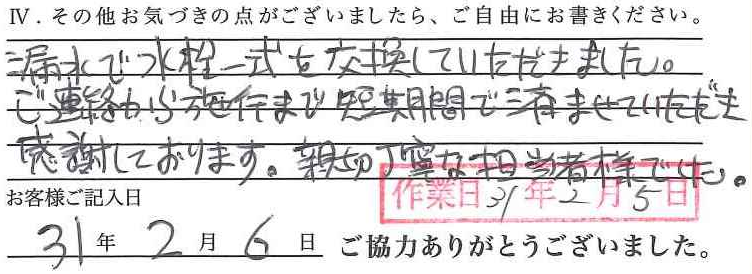 Ⅳ．その他お気づきの点がございましたら、ご自由にお書きください。
漏水で水栓一式を交換していただきました。
ご連絡から施行まで短期間で済ませていただき
感謝しております。親切丁寧な担当者様でした。
お客様ご記入日
作業日 31年 2月 5日
31年 2月 6日 ご協力ありがとうございました。